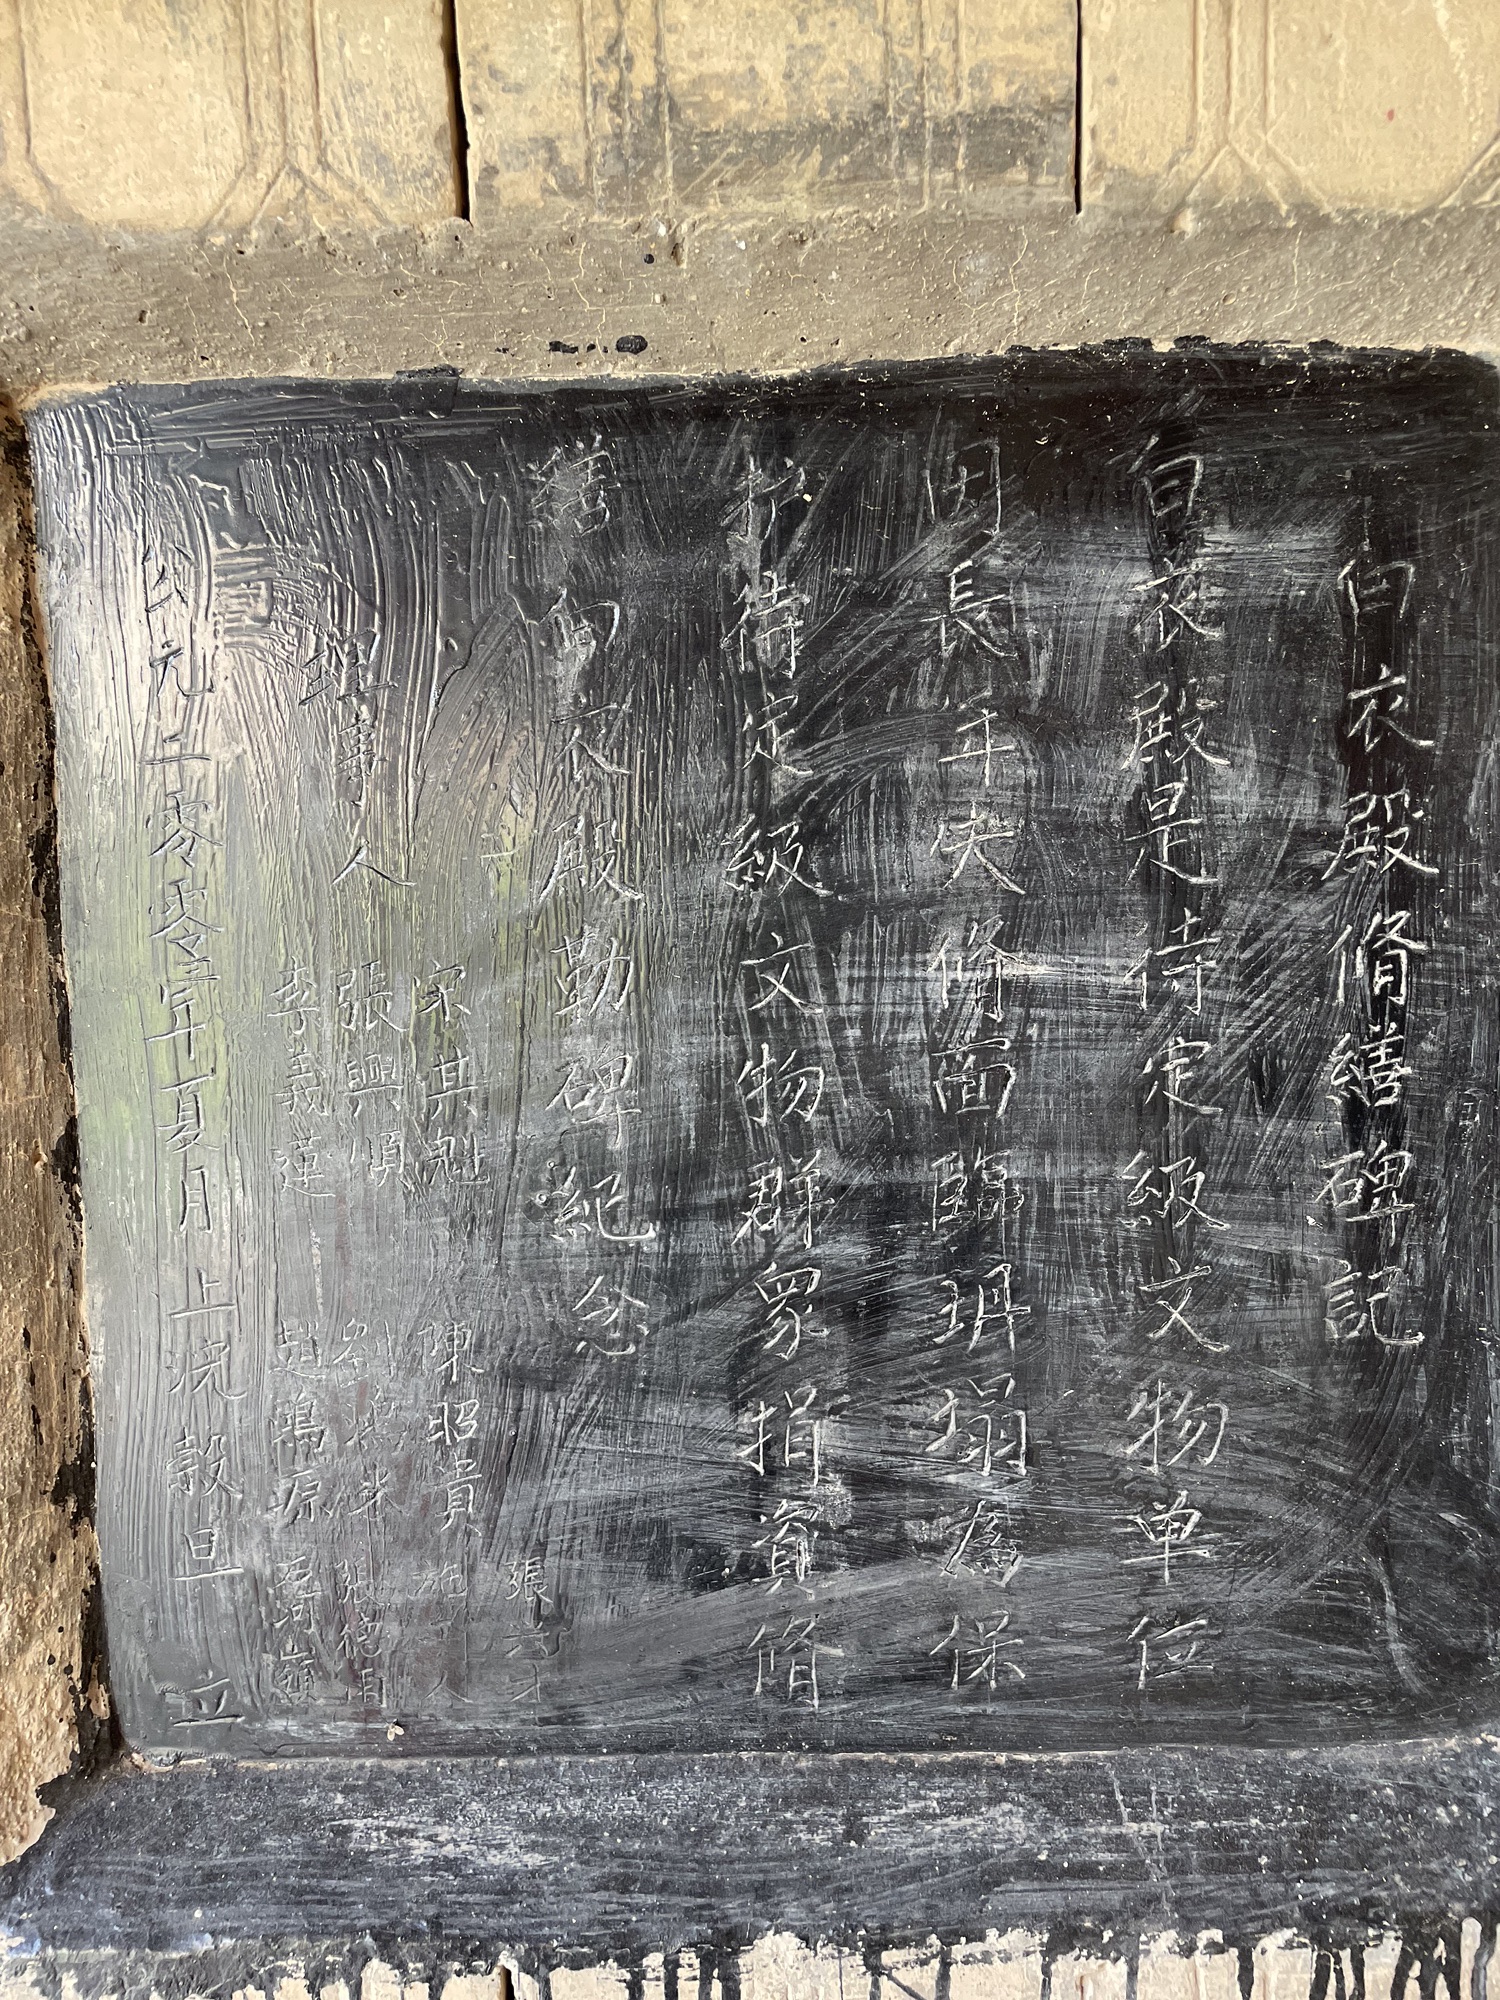 白衣殿脩繕碑記
白衣殿是待定級文物单位
因長年失脩面臨坍塌為保
护待定級文物群眾捐資脩
繕白衣殿勒碑紀念
張
宋其魁 陳昭貴 施 人
理事人 張興順 劉 張德
李義蓮 趙鴻
公元二零零三年夏月上浣榖旦 立